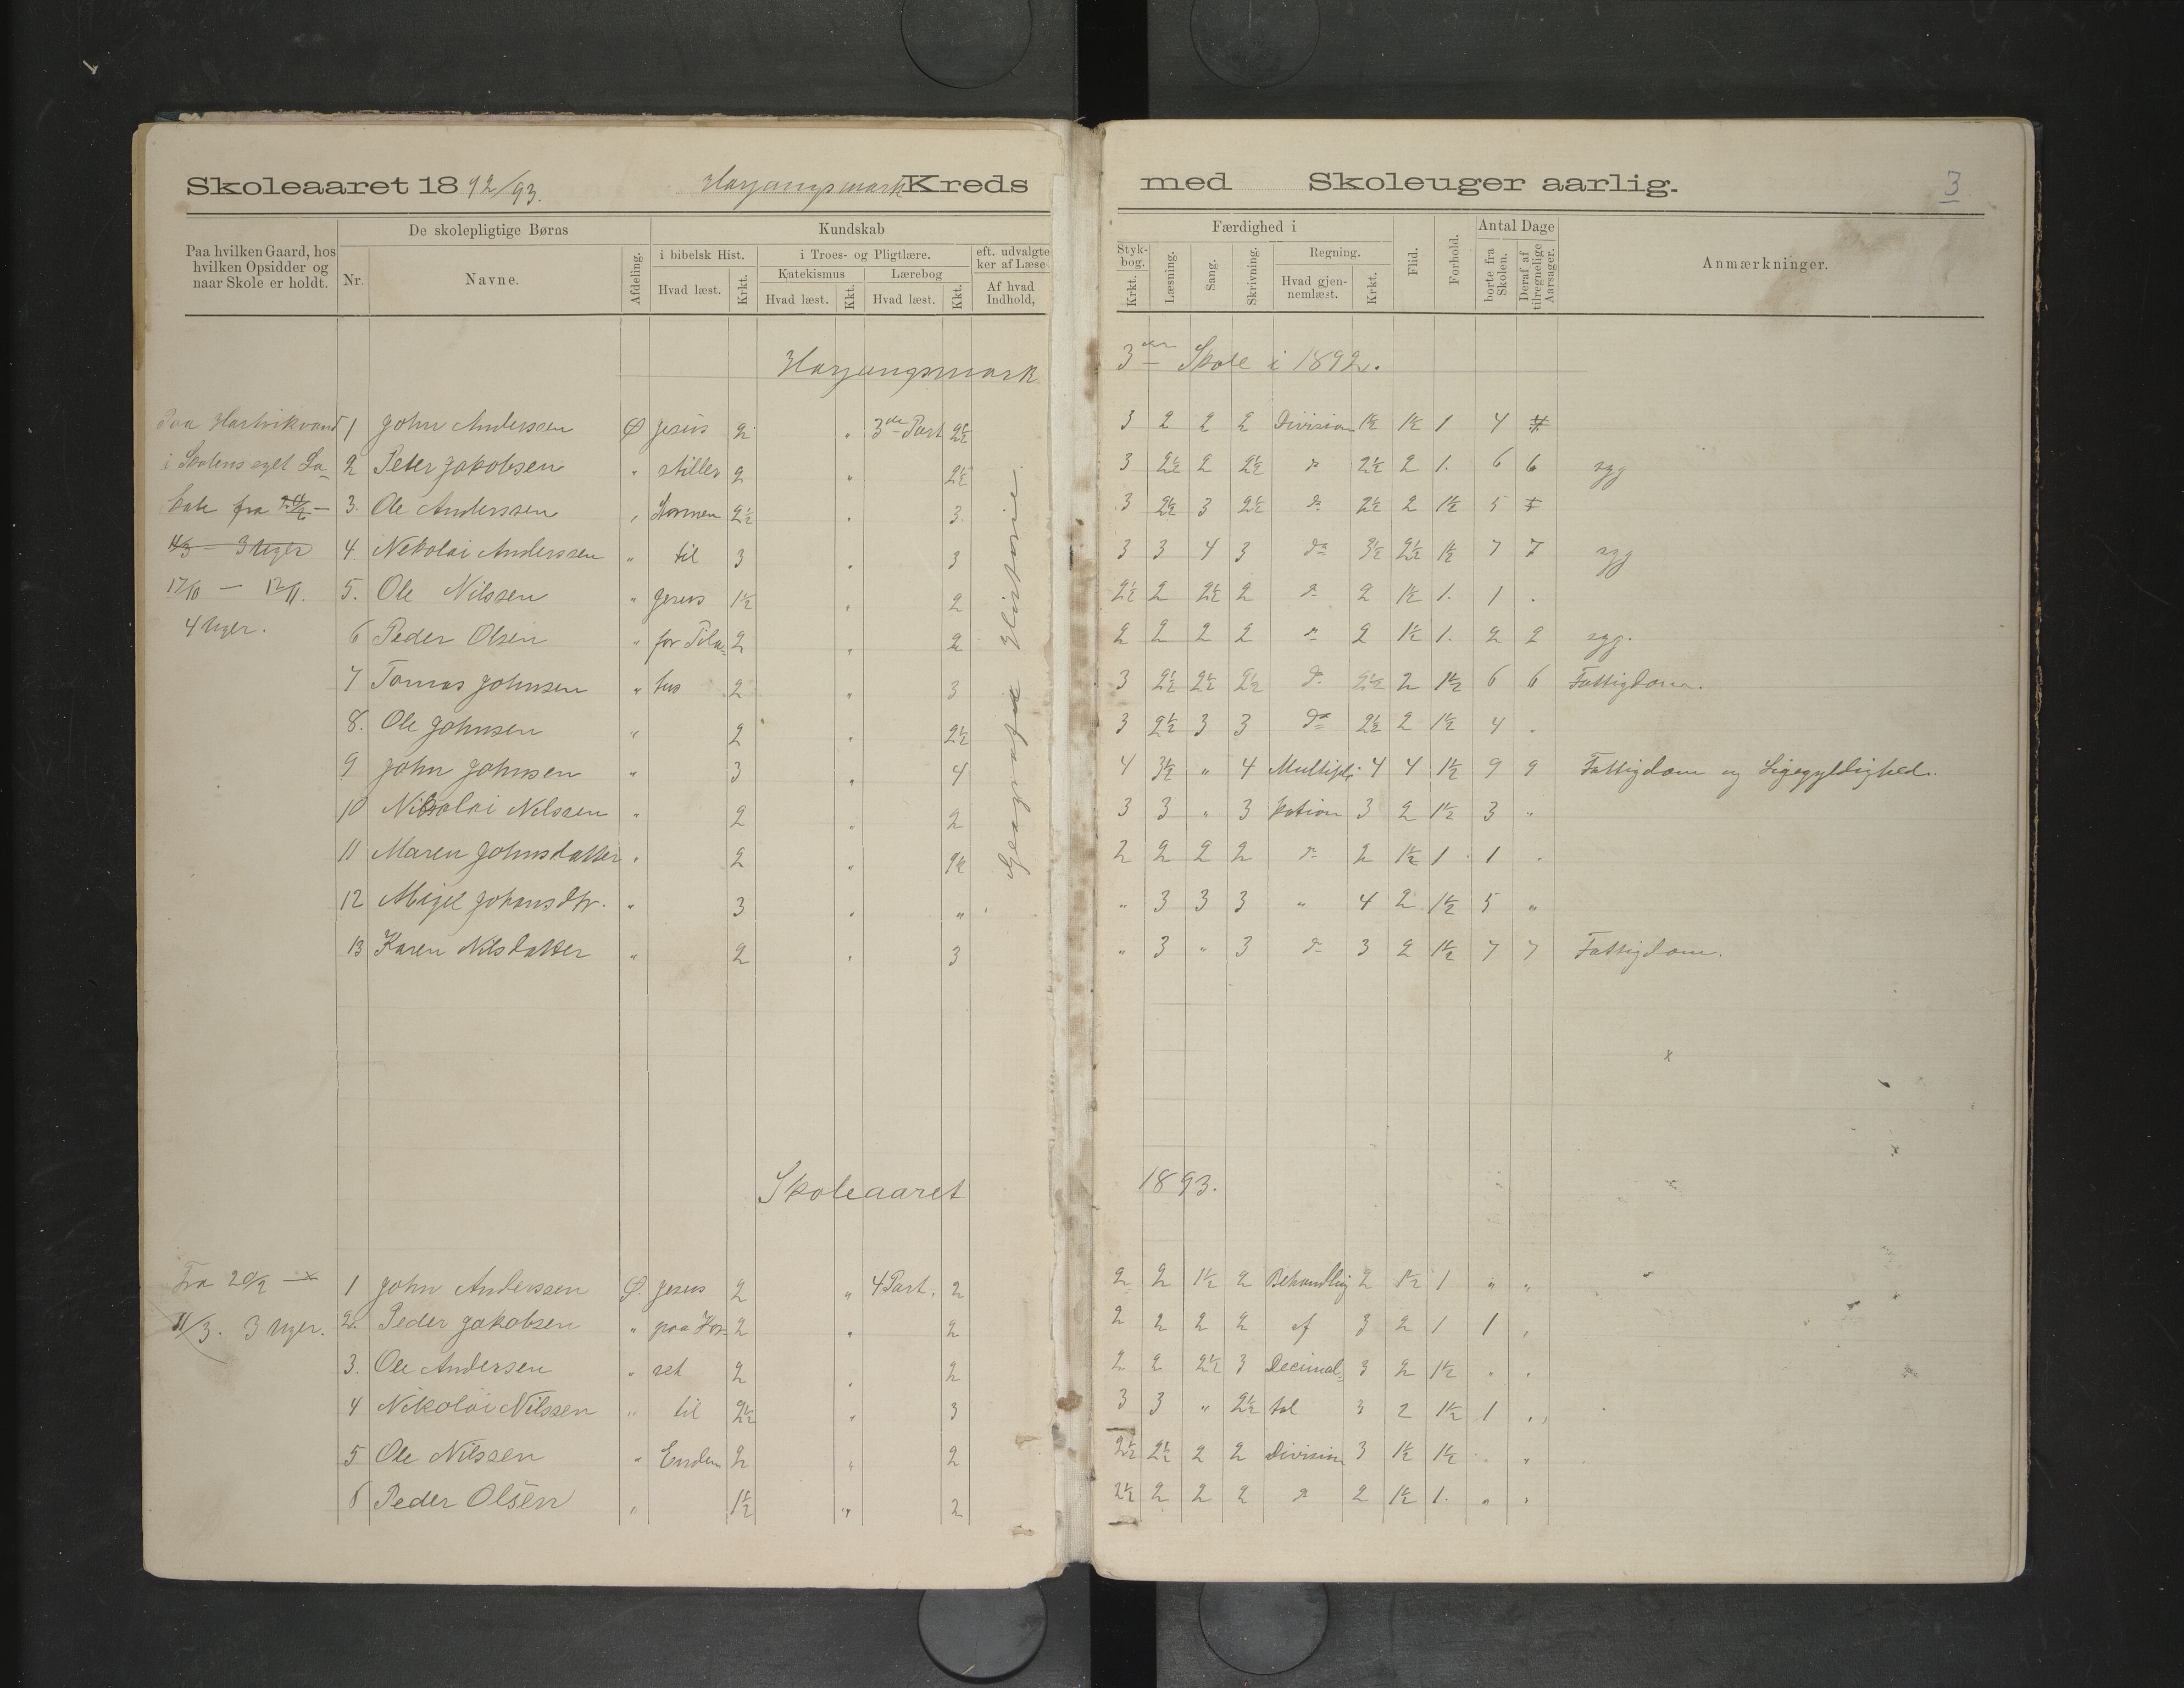 Skoleaaret 1892/93. Harjangsmark Kreds med Skoleuger aarlig. 3
Paa hvilken Gaard, hos hvilken Opsidder og naar Skole er holdt.
De skolepligtige Børns
Nr. Navne. Afdeling.
Kundskab
i bibelsk Hist. Hvad læst. Krkt.
i Troes- og Pligtlære.
Katekismus Hvad læst. Kkt.
Lærebog Hvad læst. Kkt.
eft. udvalgte
ker af Læse
Af hvad Indhold,
Styk-bog. Krkt.
Færdighed i
Læsning. Sang. Skrivning.
Regning. Hvad gjen-nemlæst. Krkt.
Flid. Forhold.
Antal Dage
borte fra Skolen. Deraf af tilregnelige Aarsager.
Anmærkninger.
Harjangsmark 3die Skole i 1892.
Paa Hartvikvand 1 John Anderssen Ø Jesus 2 " 3die Part 2½ 3 2 2 2 Division 1½ 1½ 1 4
i Skolens eget Lo- 2 Peter Jakobsen " stiller 2 " 2½ 3 2½ 2 2½ do 2½ 2 1. 6 6 syg
kale fra 3. Ole Anderssen " Stormen 2½ " 3 3 2½ 3 2½ do 2½ 2 1½ 5
11/3 - 3 Uger 4. Nekolai Anderssen " til 3 " 3 3 3 4 3 do 3½ 2½ 1½ 7 7 syg
17/10 - 12/11. 5. Ole Nilssen " Jesus 1½ " 2 2½ 2 2½ 2 do 2 1½ 1. 1 "
4 Uger. 6 Peder Olsen " for Pila- 2 " 2 2 2 2 2 do 2 1½ 1. 2 2 syg.
7 Tomas Johnsen " tus 2 " 3 3 2½ 2½ 2½ do 2½ 2 1½ 6 6 Fattigdom.
8. Ole Johnsen " 2 " 2½ 3 2½ 3 3 do 2½ 2 1½ 4 "
9 John Johnsen " 3 " 4 4 3½ " 4 Multipli- 4 4 1½ 9 9 Fattigdom og Ligegyldighed.
10 Nikolai Nilssen " 2 " 2 3 3 " 3 kation 3 2 1½ 3 "
11 Maren Johnsdatter " 2 " 2 2 2 2 do 2 1½ 1 1 "
12 Johansdtr. " 3 " " " 3 3 3 " 4 2 1½ 5 "
13 Karen Nilsdatter " 2 " 3 " 3 " 3 do 3 2 1½ 7 7 Fattigdom.
Geografi og Historie
Skoleaaret 1893.
Fra 20/2 - 1 John Anderssen Ø. Jesus 2 " 4 Part. 2 2 2 1½ 2 Behandling 2 1½ 1 " "
11/3. 3 Uger. 2. Peder Jakobsen " paa Kor- 2 " 2 2 2 2 2 af 3 2 1 1 "
3. Ole Andersen " set 2 " 2 2 2 2½ 3 Decimal- 3 2 1½ " "
4 Nikolai Nilssen " til 2½ " 3 3 3 " 2½ tal 3 2 1½ 1 "
5 Ole Nilssen " Enden 2 " 2 2½ 2½ 2 2 Division 3 1½ 1½ " "
6 Peder Olsen " 1½ " 2 2½ 2 2 2 do 2 1½ 1. " "